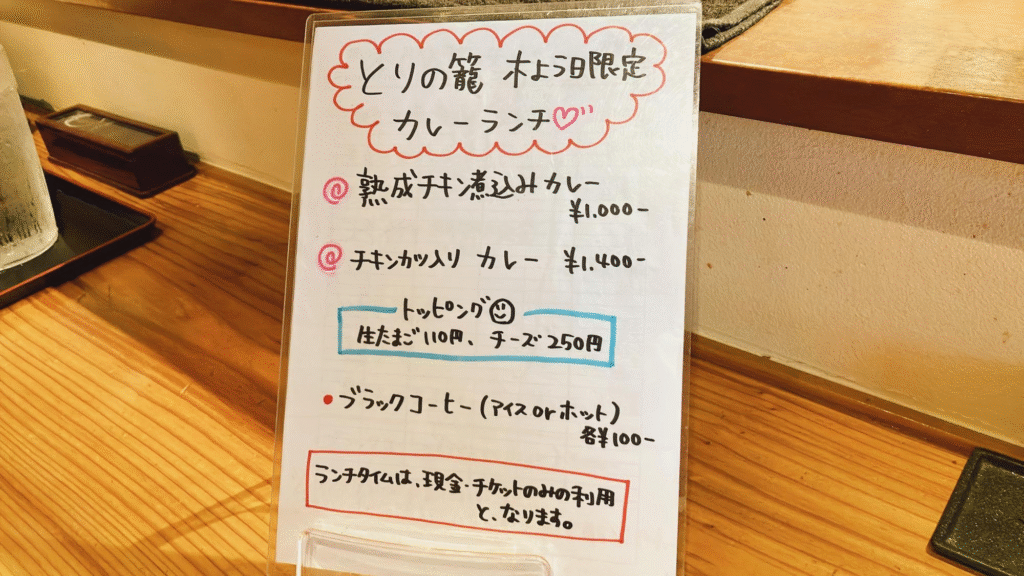 とりの籠 木よう日限定
カレーランチ
@ 熟成チキン煮込みカレー
¥1.000-
@ チキンカツ入り カレー ¥1.400-
トッピング
生たまご110円、チーズ250円
• ブラックコーヒー(アイスorホット)
各¥100-
ランチタイムは、現金・チケットのみの利用
と、なります。